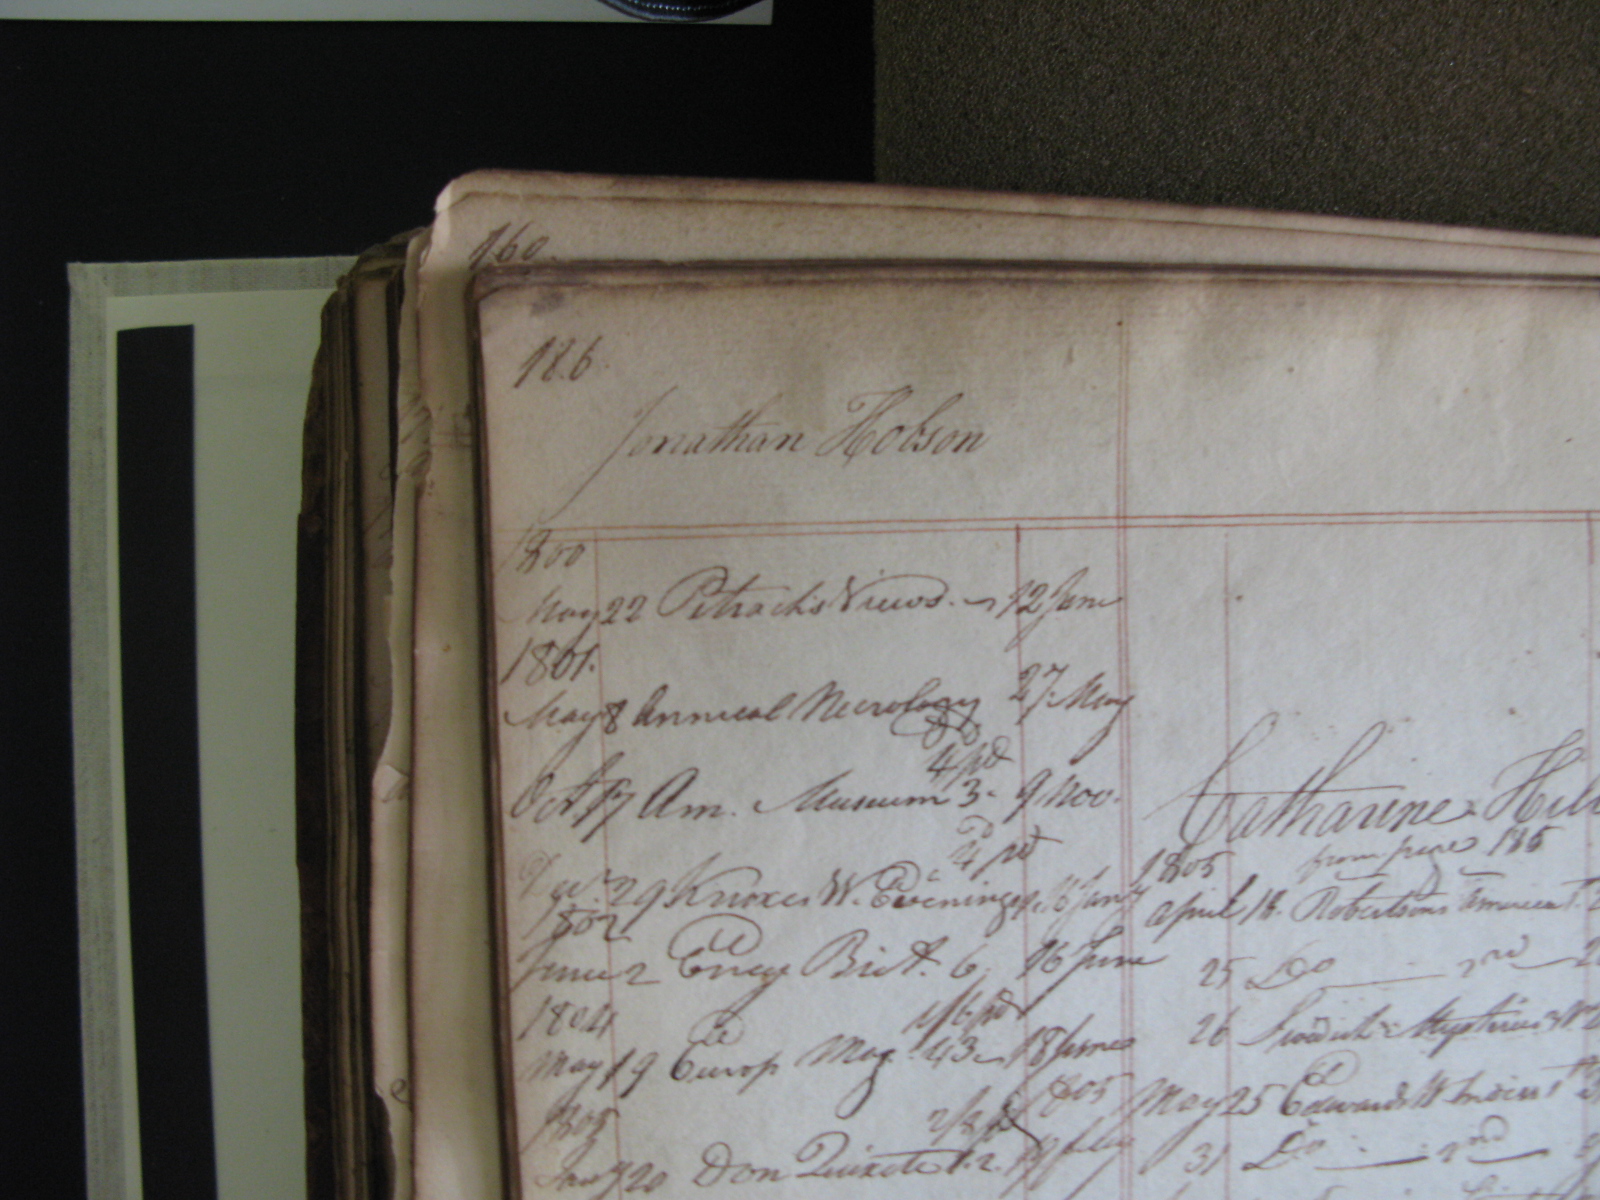 160
186.
Jonathan Hobson
1800
May 22 Petrach's Views. 12 June
1801.
May 8 Annual Necrology 27 May
4/pd
Octr 17 Am. Museum 3. 9 Nov.
4 pd
29 Knoxes W. Evenings
1802
June 2 Ency Brit. 6 16 June
1804
1/6 pd
May 19 Europ Mag. 43 18 June
1805
pd
Jany 20 Don Quixote 1.2.
1805
Catharine
from page 185
1805
April 18. Robertsons America 1.
25 Do 2nd
26 Mysteries
May 25 Edwards W Indies 1st
31 Do 2nd